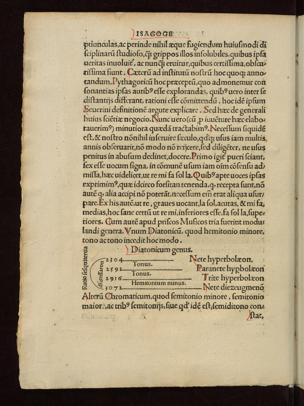 ISAGOGE
ptiunculas, ac perinde nihil æque fugiendum huiusmodi di
sciplinarū studioso, q̄ griphos illos insolubiles, quibus ipsa
ueritas inuoluit᷑, ac nunq̄ eruitur, quibus certissima, obscu
rissima sunt. Cæterū ad institutū nostrū hoc quoq; anno⸗
tandum. Pythagoricū hoc præceptū, quo admonemur con
sonantias ipsas auribꝰ esse explorandas, quibꝰ uero inter se
distantijs differant, rationi esse cōmittendū, hoc idē ipsum
Seuerini definitionē argute explicare. Sed hæc de generali
huius sciētiæ negocio. Nunc uero sūt ꝓ iuuētute hæc elabo⸗
rata uerim minutiora quædā tractabimꝰ. Necessum siquidē
est, & nostro nō nihil inseruire seculo, quāq; usus iam multis
annis obseruarit, nō modo nō reijcere, sed diligēter, ne usus
penitus in abusum declinet, docere. Primo igit᷑ pueri sciant,
sex esse uocum signa, in cōmunē usum iam oīm cōsensu ad⸗
missa, hæc uidelicet, ut re mi fa sol la. Quibꝰ apte uoces ipsas
exprimimꝰ, quæ id circo
autē q; alia accipi nō poterāt, necessum erāt
pare. Ex his autē, ut re, graues uocant᷑, la sol, acutæ, & mi fa,
medias, hoc sane certū ut re mi, inferiores esse, fa sol la, supe⸗
riores. Cum autē apud priscos Musicos tria fuerint modu⸗
landi genera. Vnum Diatonicū, quod hemitonio minore,
tono ac tono incedit hoc modo.
Diatonicum genus.
Ratio sesquitertia
diatessaron
2304 Nete hyperbolæon
Tonus.
2592 Paranete hypboleon
Tonus.
2916 Trite hyperbolæon
Hemitonium minus.
3072 Nete diezeugmenō
Alterū Chromaticum, quod semitonio minore, semitonio
maiore, ac tribꝰ semitonijs, siue qd' idē est, semiditono con⸗
stat,